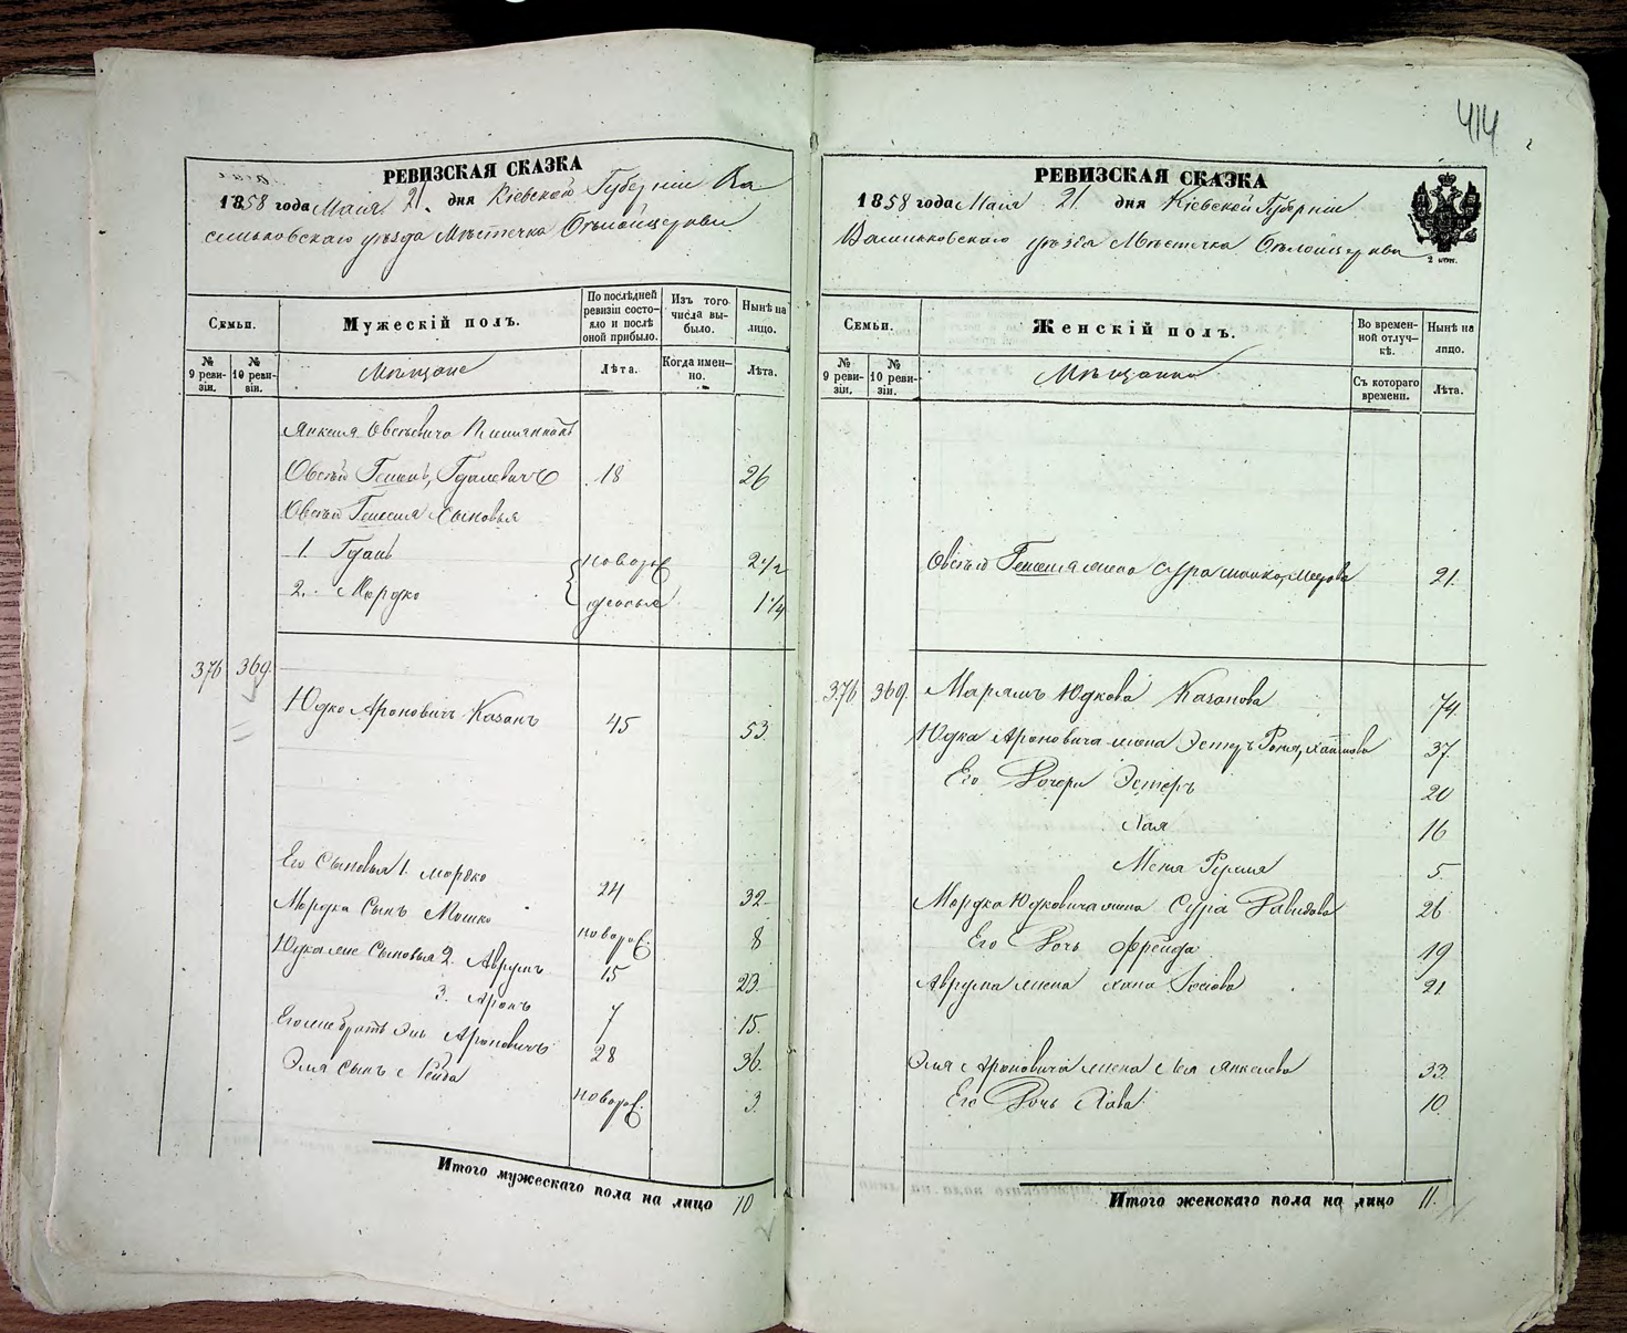 414
РЕВИЗСКАЯ СКАЗКА
1858 года Маія 21. дня Кіевской Губерніи Ва
сильковскаго уѣзда Мѣстечка Бѣлойцеркви
Семьи.
Мужескій полъ.
По послѣдней ревизіи состояло и послѣ оной прибыло.
Изъ того числа выбыло.
Нынѣ на лицо.
№ 9 ревизіи.
№ 10 ревизіи.
Мѣщане
Лѣта.
Когда именно.
Лѣта.
Янкеля Овсѣевича
Овсѣй Гдалевичъ 18 26
Овсѣя Сыновья
1. Гдаль новорож 2 1/2
2. Мордко 1 1/4
376 369. Юдко Ароновичъ Казанъ 45 53.
Его Сыновья 1. Мордко 24 32
Мордка Сынъ Мошко новорож. 8
Юдка же Сыновья 2. Аврумъ 15 23.
3. Аронъ 7 15.
Его же братъ Эль Ароновичъ 28 36.
Эля Сынъ новорож. 3.
Итого мужескаго пола на лицо 10
РЕВИЗСКАЯ СКАЗКА
1858 года Маія 21. дня Кіевской Губерніи
Васильковскаго уѣзда Мѣстечка Бѣлойцеркви
2 коп.
Семьи.
Женскій полъ.
Во временной отлучкѣ.
Нынѣ на лицо.
№ 9 ревизіи.
№ 10 ревизіи.
Мѣщанки
Съ котораго времени.
Лѣта.
Овсѣя жена Сура 21.
376 369. Марьямъ Юдкова Казанова 74.
Юдка Ароновича жена Эстеръ 37.
Его Дочери Эстеръ 20
Хая 16
5.
Мордка Юдковича жена Сура Давидова 26
Его Дочь Фрейда 19
Аврума жена Хана 21.
Эля Ароновича жена Лея Янкелева 33.
Его Дочь Хава 10.
Итого женскаго пола на лицо 11.